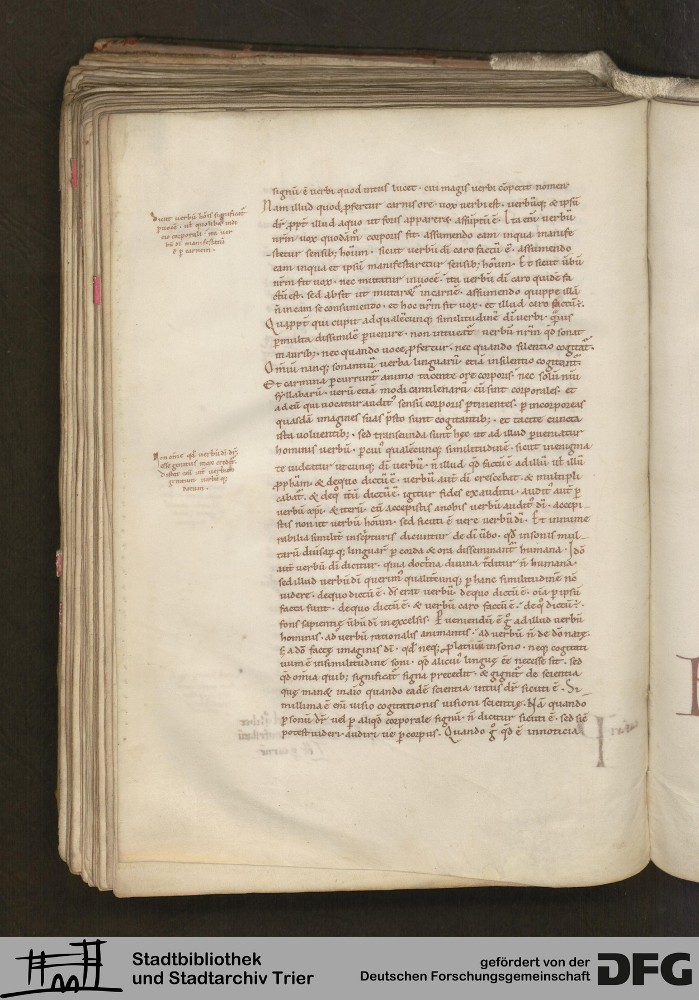 signū ē verbi quod intus lucet· cui magis verbi cōpetit nomen
Nam illud quod ꝓfertur carnis ore· vox verbi est· verbūq; & ipsū
dr̄· ꝓpt̄ illud a quo ut foris appareret· assūptū ē· Ita eni verbū
nr̄m vox quodāmo corporis fit· assumendo eam in qua manife
stetur sensib; hominū· sicut verbū dī caro factū ē· assumendo
eam in qua et ipsū manifestaretur sensib; hominū· Et sicut ūbū
nr̄m fit vox· nec mutatur in vocē· ita verbū dī caro quidē fa
ctū est· sed absit ut mutaret in carnē· assumendo quippe illā
n̄ in eam se consumendo· et hoc nr̄m fit vox· et illud caro factū ē·
Quapp̄t qui cupit ad qualēcunq; similitudinē dī verbi·
p multa dissimilē pvenire· non intueat̄ verbū nr̄m qd sonat
in aurib;· nec quando voce ꝓfertur· nec quando silentio cogitat̄·
Omīū nanq; sonantiū verba linguarū etiā in silentio cogitant̄·
Et carmina pcurrunt̄ animo tacente ore corporis· nec solū
syllabarū· verū etiā modi cantilenarū cū sint corporales· et
ad eū qui vocatur auditꝰ sensū corporis ptinentes· p incorporeas
quasdā imagines suas psto sunt cogitantib;· et tacite cuncta
ista volventib;· sed transeunda sunt hęc ut ad illud pveniatur
hominis verbū· p cuiꝰ qualēcunq; similitudinē· sicut in enigma
te videatur utcunq; dī verbū· n̄ illud qd factū ē ad illū ut illū
ꝓphām· & de quo dictū ē· verbū aut̄ dī crescebat· & multipli
cabat̄· & de q iterū dictū ē· igitur fides ex auditu· auditꝰ aut̄ p
verbū xp̄i· & iterū· cū accepistis a nobis verbū auditꝰ dī· accepi
stis non ut verbū hominū· sed sicuti ē vere verbū dī· Et innume
rabilia similit̄ in scripturis dicuntur de dī ūbo· qd in sonis mul
tarū diūsarūq; linguarū p corda & ora disseminant̄ humana· Idō
aut̄ verbū dī dicitur· quia doctrina divina traditur n̄ humana·
sed illud verbū dī querimꝰ qualitcunq; p hanc similitudinē nc̄
videre· de quo dictū ē· ds̄ erat verbū· de quo dictū ē· oīa p ipsū
facta sunt· de quo dictū ē· & verbū caro factū ē· de quo dictū ē·
fons sapientię ūbū dī in excelsis· Pveniendū ē ḡ ad illud verbū
hominis· ad verbū rationalis animantis· ad verbū n̄ de dō natę
s; a dō factę imaginis dī· qd neq; ꝓlativū in sono· neq; cogitati
vum ē in similitudine soni· qd alicuiꝰ linguę ēē necesse sit· sed
qd omnia quib; significat̄ signa precedit· & gignit̄ de scientia
quę manet in aīo quando eadē scientia intus dr̄ sicuti ē· Si
millima ē enī visio cogitationis visioni scientię· Nā quando
p sonū dr̄ vel p aliqd corporale signū· n̄ dicitur sicuti ē· sed sic̄
potest videri· audiri ve p corpus· Quando ḡ qd ē in noticia
Sicut verbū hōis significat̄
p vocē· ut quolibet
sic corporali· ita ver
bū dī manifestatū
ē p carnem·
Non omē qd verbū dī dr̄
esse genitus
Stadtbibliothek
und Stadtarchiv Trier
gefördert von der
Deutschen Forschungsgemeinschaft
DFG